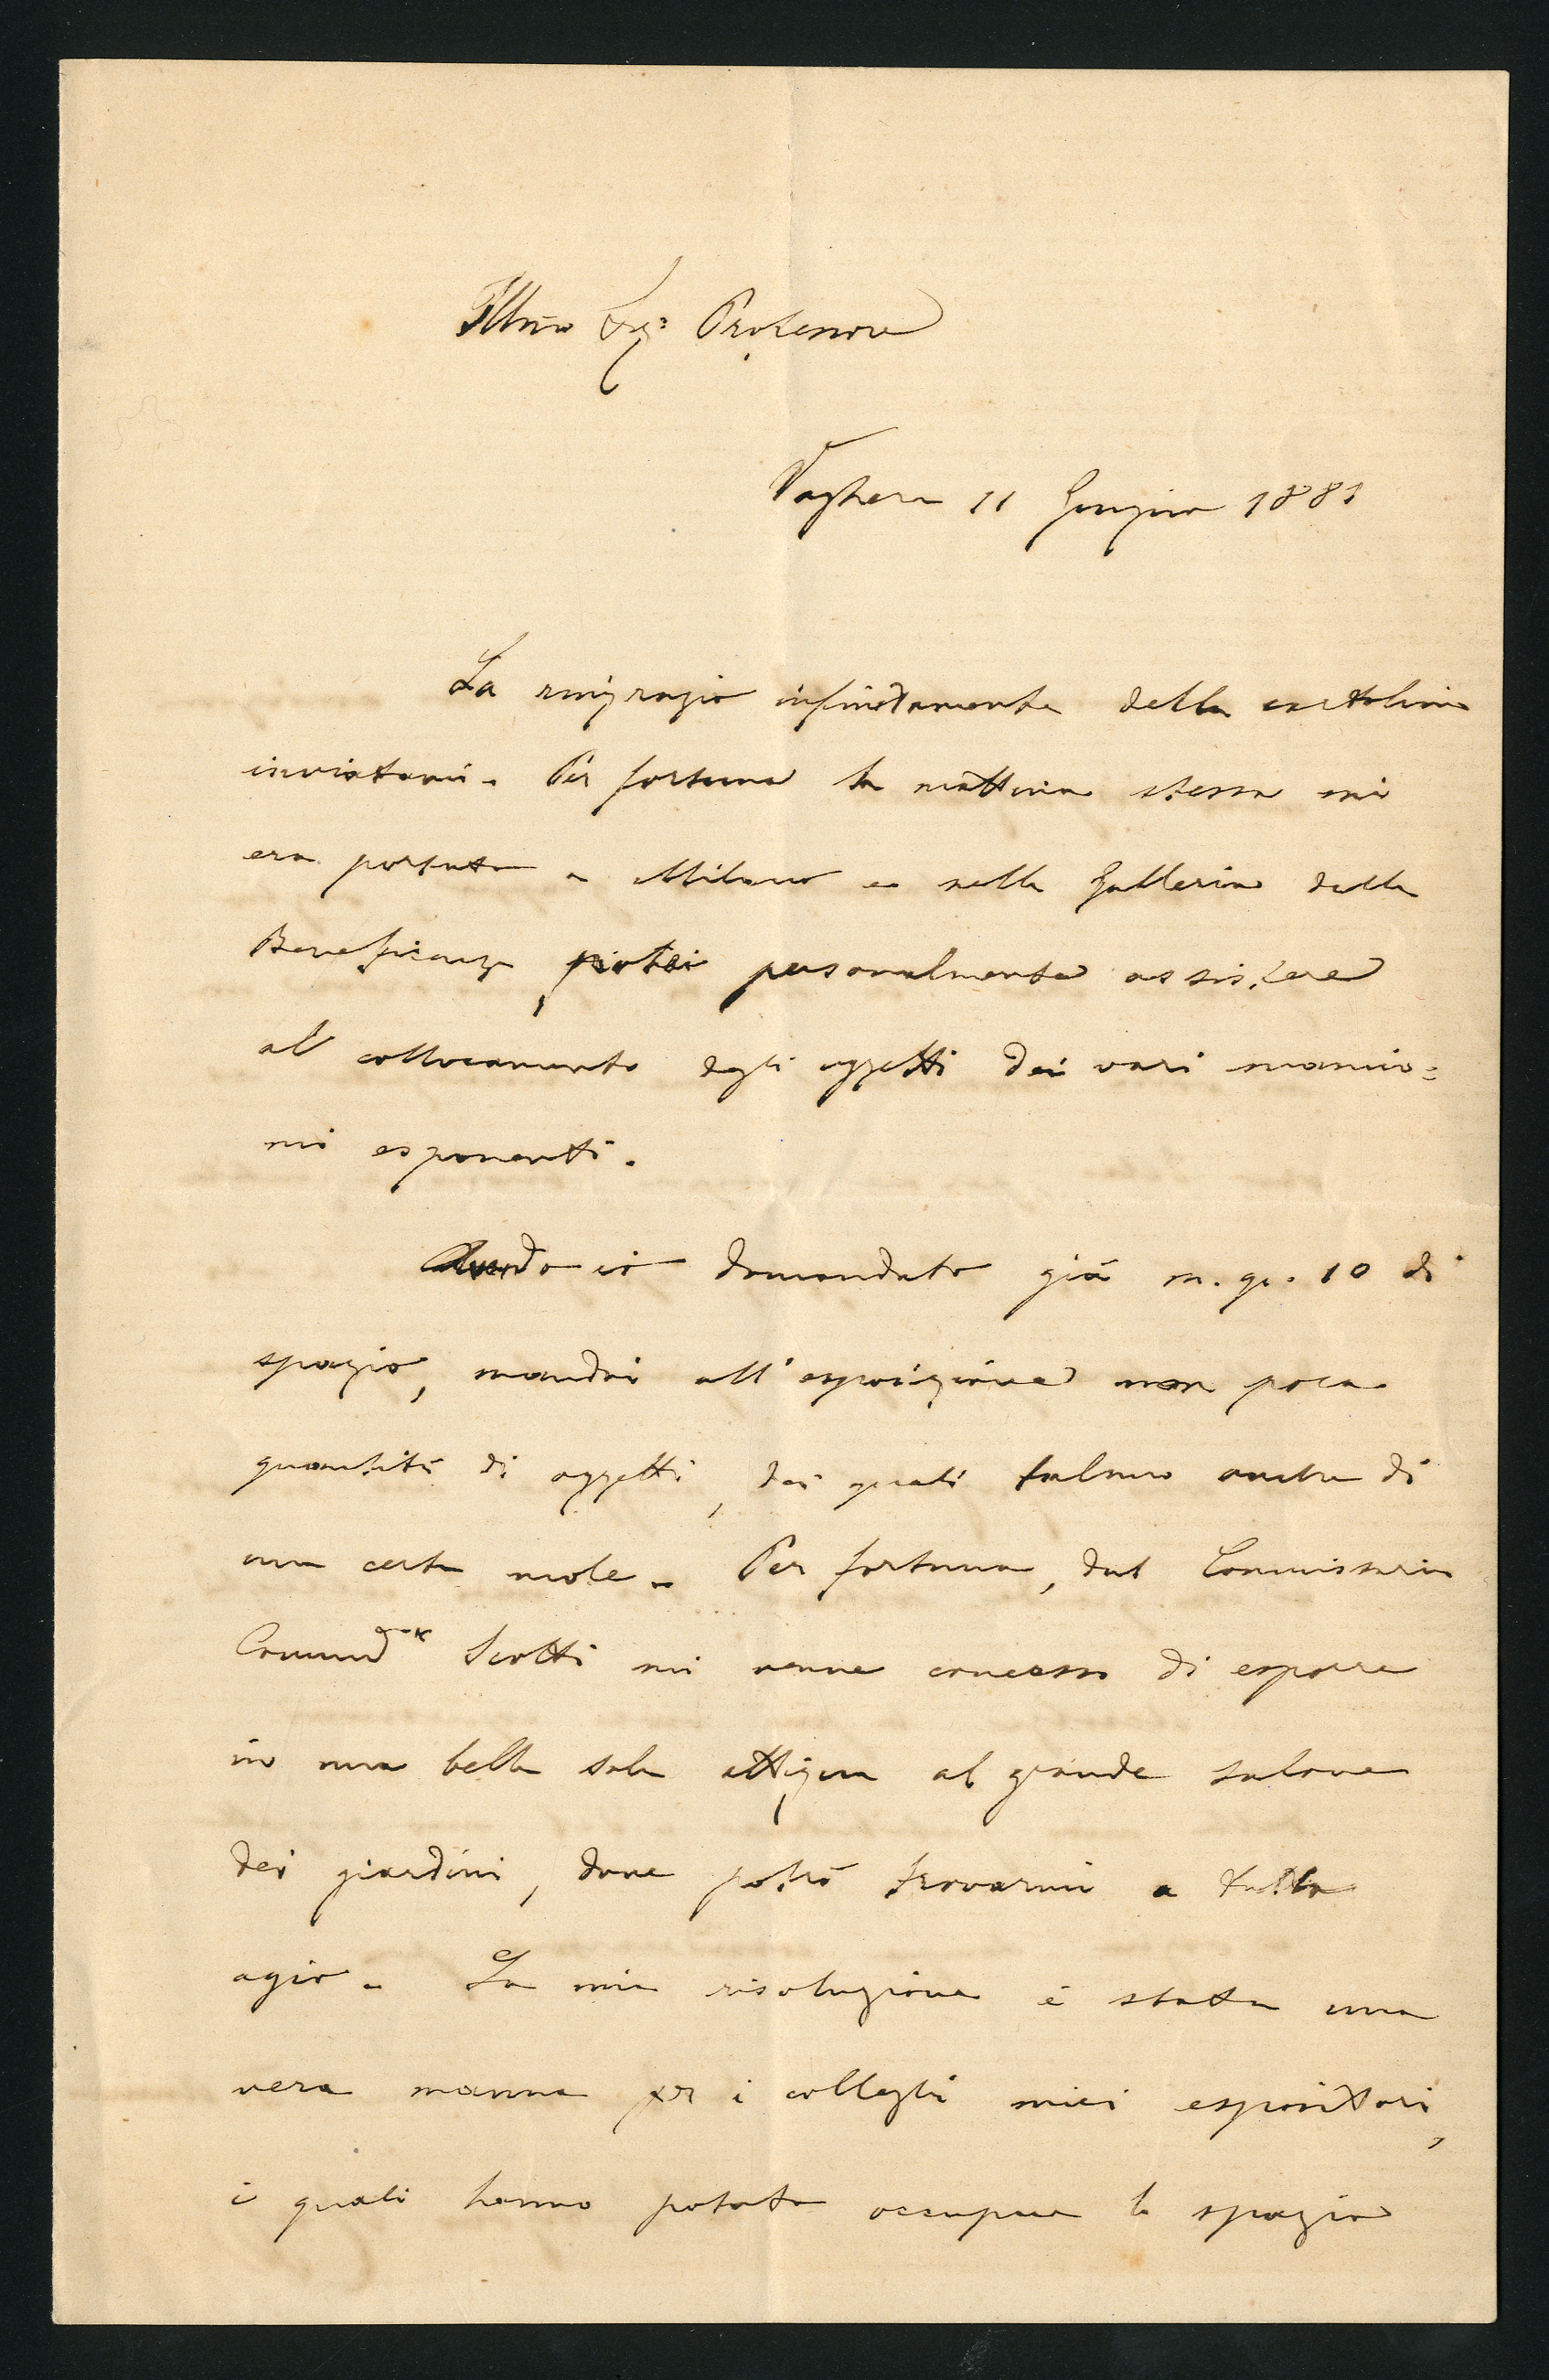 Illmo Sigr Professore
Voghera 11 Giugno 1881
La ringrazio infinitamente della cartolina
inviatami. Per fortuna la mattina stessa mi
era portato a Milano e nella Galleria della
Beneficenza potei personalmente assistere
al collocamento degli oggetti dei vari manico=
mi esponenti.
Avendo io domandato già m. q. 10 di
spazio, mandai all'esposizione non poca
quantità di oggetti, dei quali taluno anche di
una certa mole. Per fortuna, dal Commissario
Commd Scotti mi venne concesso di esporre
in una bella sala attigua al grande salone
dei giardini, dove potrò trovarmi a tutto
agio. La mia risoluzione è stata una
vera manna per i colleghi miei espositori,
i quali hanno potuto occupare lo spazio